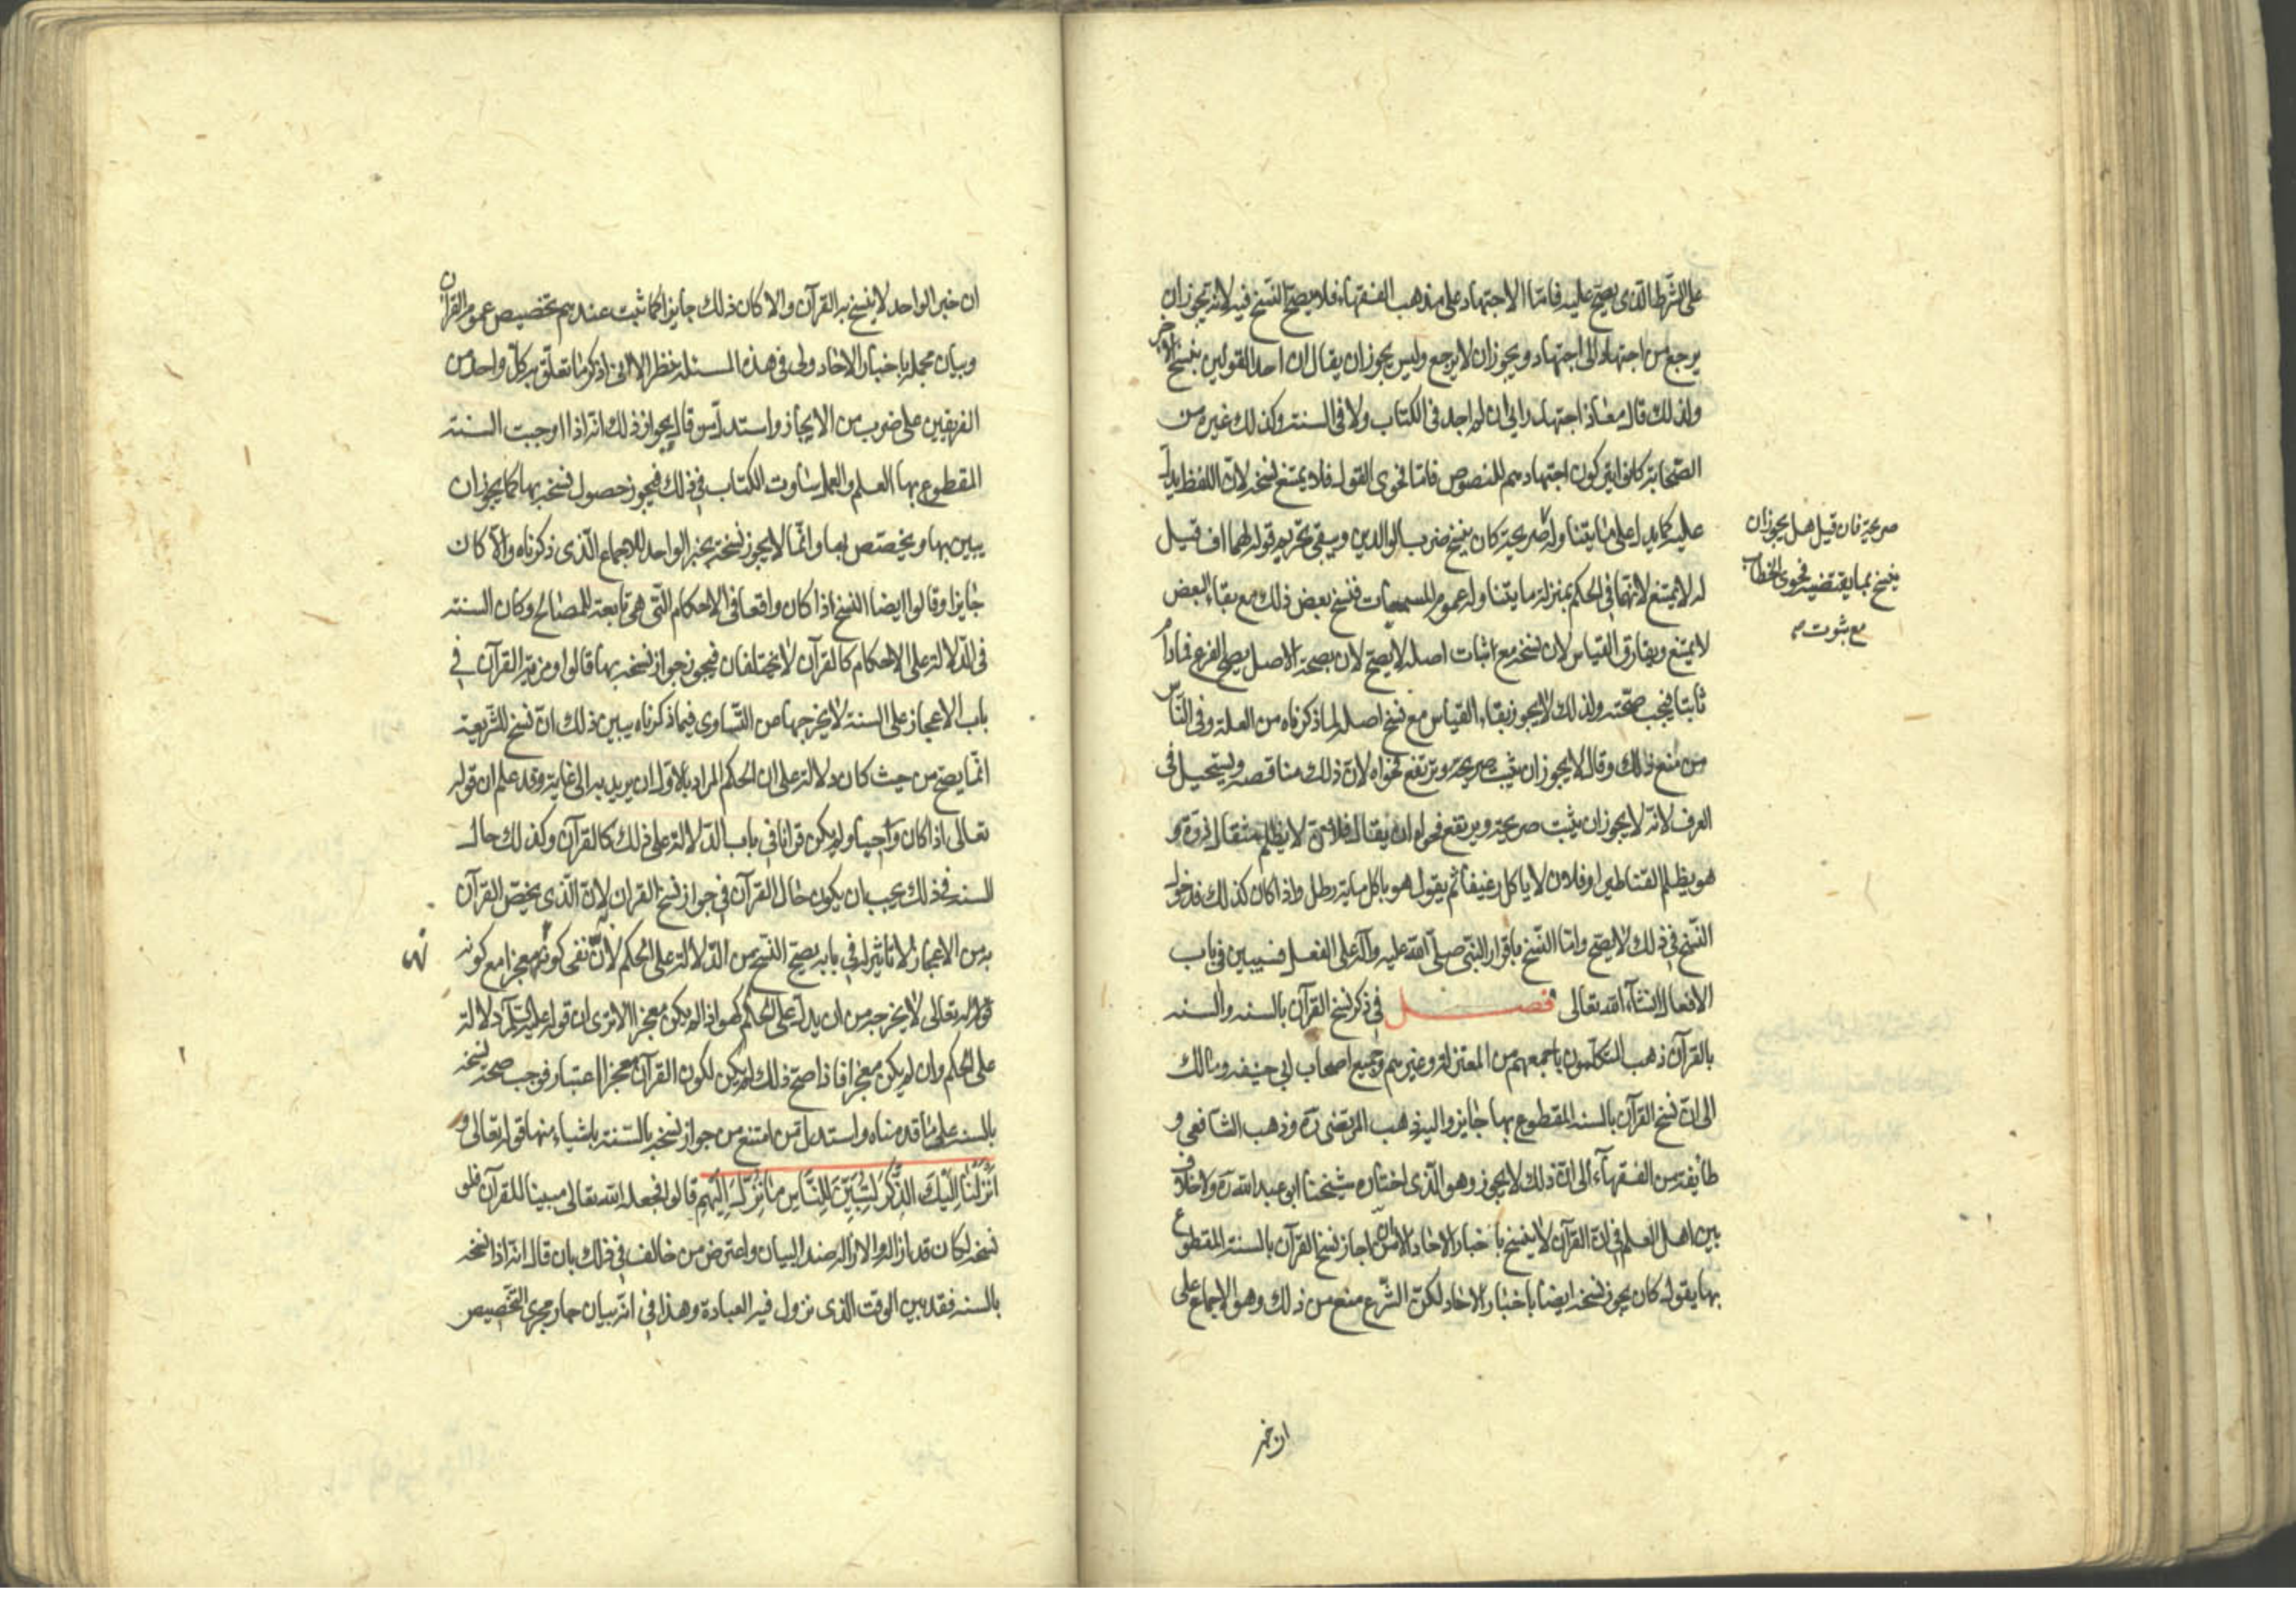 على الشرط الذى يصح عليه فامّا الاجتهاد على مذهب الفقهاء فلا يصح النسخ فيه لانه يجوز ان
يرجع من اجتهاد الى اجتهاد ويجوز ان لا يرجع وليس يجوز ان يقال ان احد القولين ينسخ الآخر
ولذلك قال معاذ اجتهد رايى ان لم اجد فى الكتاب ولا فى السنة وكذلك غيره من
الصّحابة كانوا يتركون اجتهادهم للنصوص فامّا فحوى القول فلا يمتنع نسخه لانّ اللفظ يدلّ
عليه كما يدل على ما يتناوله صريحة كان ينسخ ضرب الوالدين ويبقى تحريم قوله لهما اف قيل
له لا يمتنع لانهما فى الحكم بمنزلة ما يتناوله عموم المسميات فنسخ بعض ذلك مع بقاء البعض
لا يمتنع ويفارق القياس لان نسخه مع اثبات اصله لا يصح لان بصحة الاصل يصح الفرع فمادام
ثابتا فيجب صحّته ولذلك لا يجوز بقاء القياس مع نسخ اصله لما ذكرناه من العلة وفى النّاس
من منع ذلك وقال لا يجوز ان يثبت صريحه ويرتفع فحواه لان ذلك مناقصه ويستحيل فى
العرف لانه لا يجوز ان يثبت صريحه ويرتفع فحواه ان يقال فلان لا يظلم مثقال ذرة و
هو يظلم القناطير او فلان لا ياكل رغيفا ثم يقول هو ياكل مايه رطل واذا كان كذلك فدخول
النّسخ فى ذلك لا يصح وامّا النّسخ باقرار النبّى صلّى الله عليه وآله على الفعل فسيبين فى باب
الافعال انشآء الله تعالى فصل فى ذكر نسخ القرآن بالسنه والسنه
بالقرآن ذهب المتكلّمون باجمعهم من المعتزلة وغيرهم وجميع اصحاب ابى حنيفه ومالك
الى انّ نسخ القرآن بالسنه المقطوع بها جايز واليه ذهب المرتضى ره وذهب الشافعى و
طايفة من الفقهآء الى انّ ذلك لا يجوز وهو الّذى اختاره شيخنا ابو عبد الله ره ولا خلاف
بين اهل العلم فى انّ القرآن لا ينسخ باخبار الاحاد الا انّ من اجاز نسخ القرآن بالسنة المقطوع
بها يقول كان يجوز نسخه ايضا باخبار الاحاد لكنّ الشّرع منع من ذلك وهو الاجماع على
صريحة فان قيل هل يجوز ان
ينسخ بما يقتضيه فحوى الخطاب
مع ثبوت صح
ان خبر
ان خبر الواحد لا ينسخ به القرآن والا كان ذلك جايزا كما ثبت عندهم تخصيص عموم القرآن
وبيان مجمله باخبار الاحاد ولى فى هذه المسئلة نظر الا انى اذكر ما تعلّق به كلّ واحد من
الفريقين على ضرب من الايجاز واستدلّ من قال بجواز ذلك انه اذا اوجبت السنة
المقطوع بها العلم والعمل ساوت الكتاب فى ذلك فيجوز حصول نسخه بها كما يجوز ان
يبين بها ويخصّص بها وانّما لا يجوز نسخه بخبر الواحد للاجماع الّذى ذكرناه والّا كان
جايزا وقالوا ايضا النسخ اذا كان واقعا فى الاحكام التّى هى تابعة للمصالح وكان السنة
فى الدّلالة على الاحكام كالقرآن لا يختلفان فيجوز جواز نسخه بها قالوا ومزية القرآن فى
باب الاعجاز على السنة لا يخرجها من التّساوى فيما ذكرناه يبين ذلك انّ نسخ الشّريعة
انّما يصح من حيث كان دلالة على ان الحكم المراد بالاول ان يريد به الى غاية وقد علم ان قوله
تعالى اذا كان وحيا ولم يكن قرانا فى باب الدّلالة على ذلك كالقرآن وكذلك حال
السنه فذلك يجب ان يكون حال القرآن فى جواز نسخ القران به لانّ الّذى يختصّ القرآن
به من الاعجاز لا تاثير له فى بابه يصحّ النّسخ من الدّلالة على الحكم لانّ نفى كونه معجزا مع كونه
قولا له تعالى لا يخرجه من ان يدلّ على الحكم كهو اذا لم يكن معجزا الا ترى ان قوله عليه السّلم دلالة
على الحكم وان لم يكن معجزا فاذا صحّ ذلك لم يكن لكون القرآن معجزا اعتبار فوجب صحه نسخه
بالسنه على ما قدمناه واستدل من امتنع من جواز نسخه بالسّنة باشياء منها قوله تعالى و
اَنْزَلْنَا اِلَيْكَ الذِّكْرَ لِتُبَيِّنَ لِلنَّاسِ مَا نُزِّلَ اِلَيْهِمْ قالوا فجعله الله تعالى مبينا للقرآن فلو
نسخه لكان قد ازاله والازاله ضد البيان واعترض من خالف فى ذلك بان قال انه اذا نسخه
بالسنه فقد بين الوقت الّذى تزول فيه العبادة وهذا فى انّه بيان جار مجرى التّخصيص